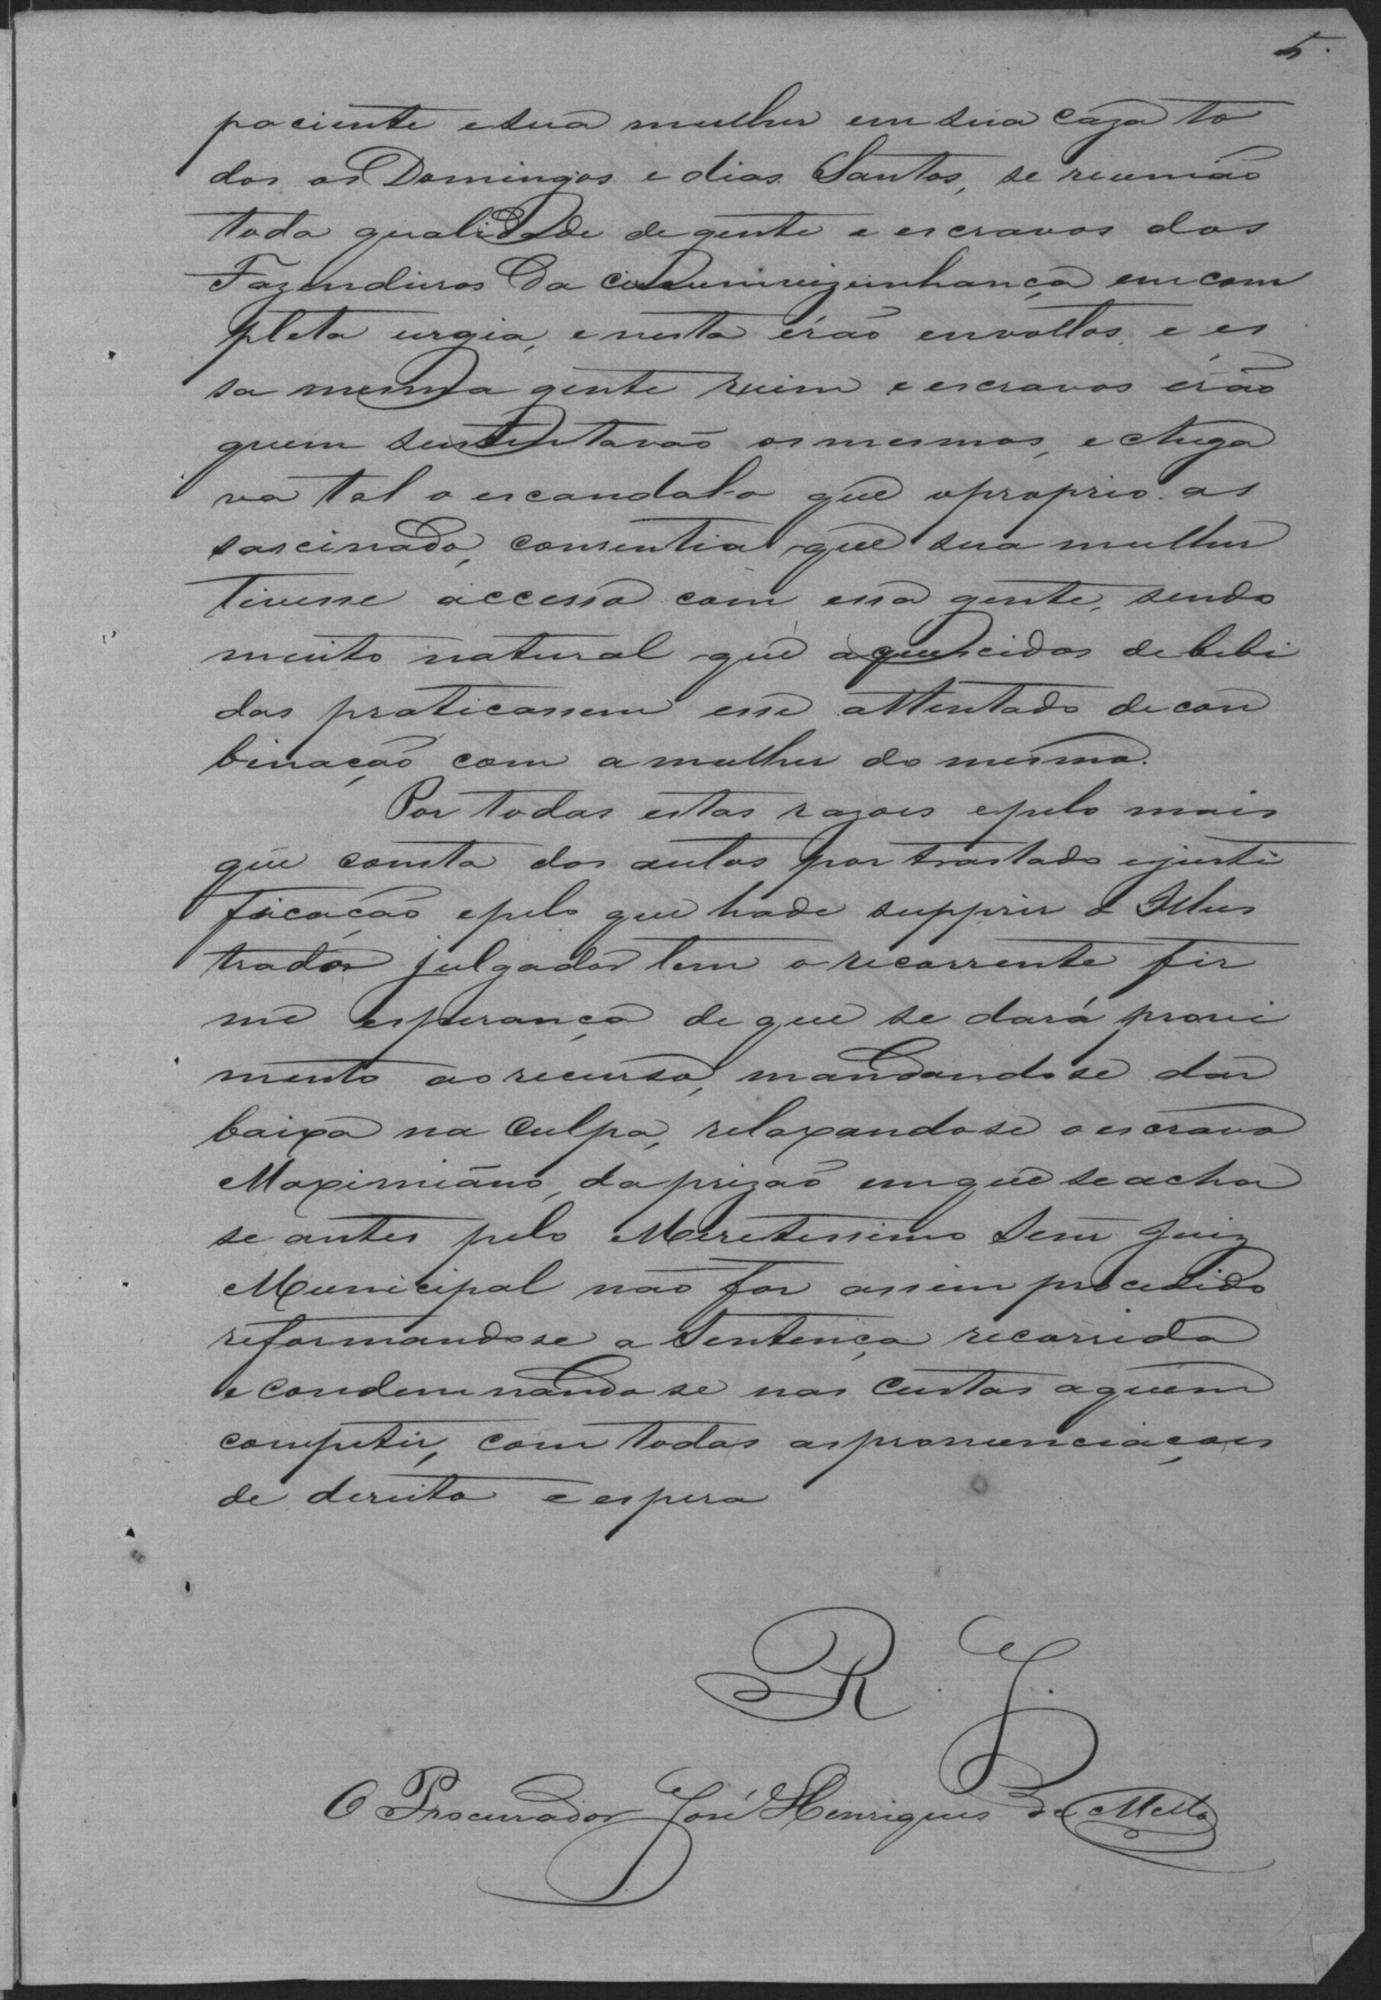 5.
paciente e sua mulher em sua caza to
dos os Domingos e dias Santos, se reunião
toda qualidade de gente e escravos dos
Fazendeiros da circumvizinhança em com
pleta urgia, e nesta érão envoltos, e es
sa mesma gente ruim e escravos érão
quem sustentavão os mesmos, e chega
va tal o escandalo que o proprio as
sascinado, consentia que sua mulher
tivesse accesso com essa gente, sendo
muito natural que aquescidos de bebi
das praticassem esse attentado de con
binação com a mulher do mesmo.
Por todas estas razoes e pelo mais
que consta dos autos por traslado e justi
ficação e pelo que hade supprir o Illus
trador julgador tem o recorrente fir
me esperança de que se dará provi
mento ao recurso, mandando se dar
baixa na culpa, relaxando se o escravo
Maximiano, da prizão em que se acha
se antes pelo Meretissimo Senr Juiz
Municipal não for assim procedido
reformando se a Sentença recorrida
e condemnando se nas custas a quem
competir, com todas as pronunciaçoes
de direito e espera
R. J.
O Procurador José Henriques de Mello